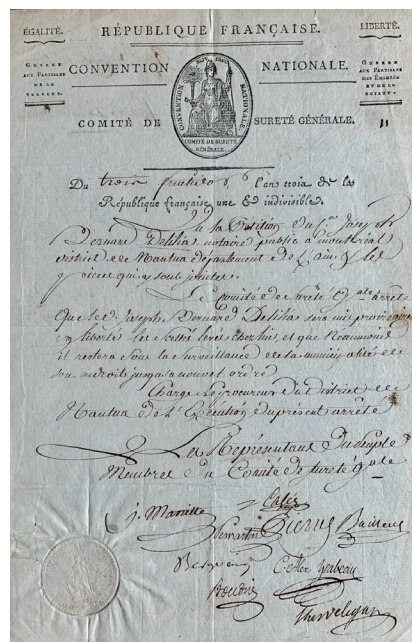 ÉGALITÉ.
RÉPUBLIQUE FRANÇAISE.
LIBERTÉ.
GUERRE
AUX PARTISANS
DE LA
TERREUR.
CONVENTION NATIONALE.
GUERRE
AUX PARTISANS
DES EMIGRÉS
ET DE LA
ROYAUTÉ
CONVENTION NATIONALE.
COMITÉ DE SURETÉ
GÉNÉRALE.
COMITÉ DE SURETÉ GÉNÉRALE.
11
Du trois fructidor l'an trois de la
République française, une & indivisible.
Vu la Pétition du Cen Joseph
Bernard Delilia notaire public à montreal
district de Nantua département de L'ain & les
pieces qui y sont jointes.
Le Comité de sureté gale arrête
que le C. Joseph Bernard Delilia sera mis
en liberté les scellés levés chez lui, et que neanmoins
il restera sous la surveillance de la municipalité de
son endroit jusqu'à nouvel ordre
Charge le procureur du district de
Nantua de l'Exécution du présent arrêté
Les Représentans du peuple
Membres du Comité de sureté gale
j. Mariette
Calès
Pemartin Pierret Bailleul
Bergoeing
Boudin
Kervelegan